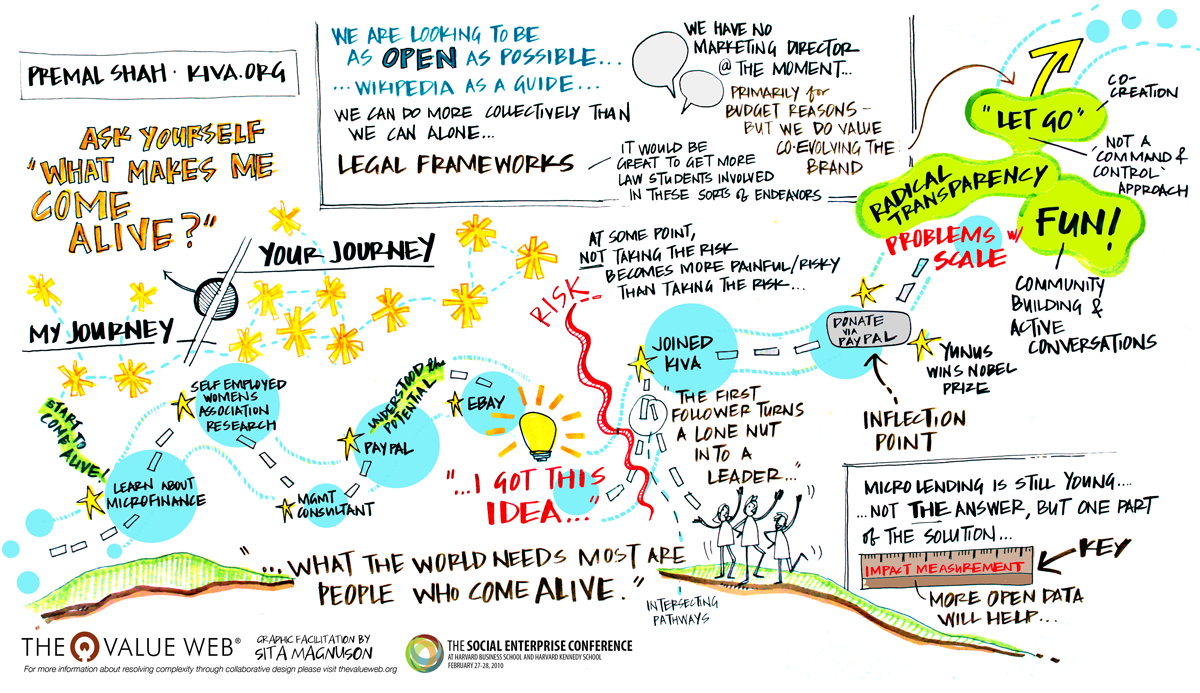 PREMAL SHAH · KIVA.ORG
ASK YOURSELF
"WHAT MAKES ME
COME
ALIVE?"
WE ARE LOOKING TO BE
AS OPEN AS POSSIBLE...
...WIKIPEDIA AS A GUIDE...
WE CAN DO MORE COLLECTIVELY THAN
WE CAN ALONE...
LEGAL FRAMEWORKS
IT WOULD BE
GREAT TO GET MORE
LAW STUDENTS INVOLVED
IN THESE SORTS of ENDEAVORS
WE HAVE NO
MARKETING DIRECTOR
@ THE MOMENT...
PRIMARILY for
BUDGET REASONS –
BUT WE DO VALUE
CO-EVOLVING THE
BRAND
"LET GO"
CO-
CREATION
NOT A
'COMMAND &
CONTROL'
APPROACH
RADICAL
TRANSPARENCY
FUN!
COMMUNITY
BUILDING &
ACTIVE
CONVERSATIONS
PROBLEMS w/
SCALE
YOUR JOURNEY
MY JOURNEY
START TO
COME ALIVE!
LEARN ABOUT
MICROFINANCE
SELF EMPLOYED
WOMENS
ASSOCIATION
RESEARCH
MGMT
CONSULTANT
UNDERSTOOD the
POTENTIAL
PAYPAL
EBAY
"...I GOT THIS
IDEA..."
RISK
AT SOME POINT,
NOT TAKING THE RISK
BECOMES MORE PAINFUL/RISKY
THAN TAKING THE RISK...
JOINED
KIVA
"THE FIRST
FOLLOWER TURNS
A LONE NUT
INTO A
LEADER..."
DONATE
VIA
PAYPAL
YUNUS
WINS NOBEL
PRIZE
INFLECTION
POINT
MICROLENDING IS STILL YOUNG....
...NOT THE ANSWER, BUT ONE PART
of THE SOLUTION...
IMPACT MEASUREMENT
KEY
MORE OPEN DATA
WILL HELP...
"...WHAT THE WORLD NEEDS MOST ARE
PEOPLE WHO COME ALIVE."
INTERSECTING
PATHWAYS
THE VALUE WEB®
GRAPHIC FACILITATION BY
SITA MAGNUSON
For more information about resolving complexity through collaborative design please visit thevalueweb.org
THE SOCIAL ENTERPRISE CONFERENCE
AT HARVARD BUSINESS SCHOOL AND HARVARD KENNEDY SCHOOL
FEBRUARY 27-28, 2010